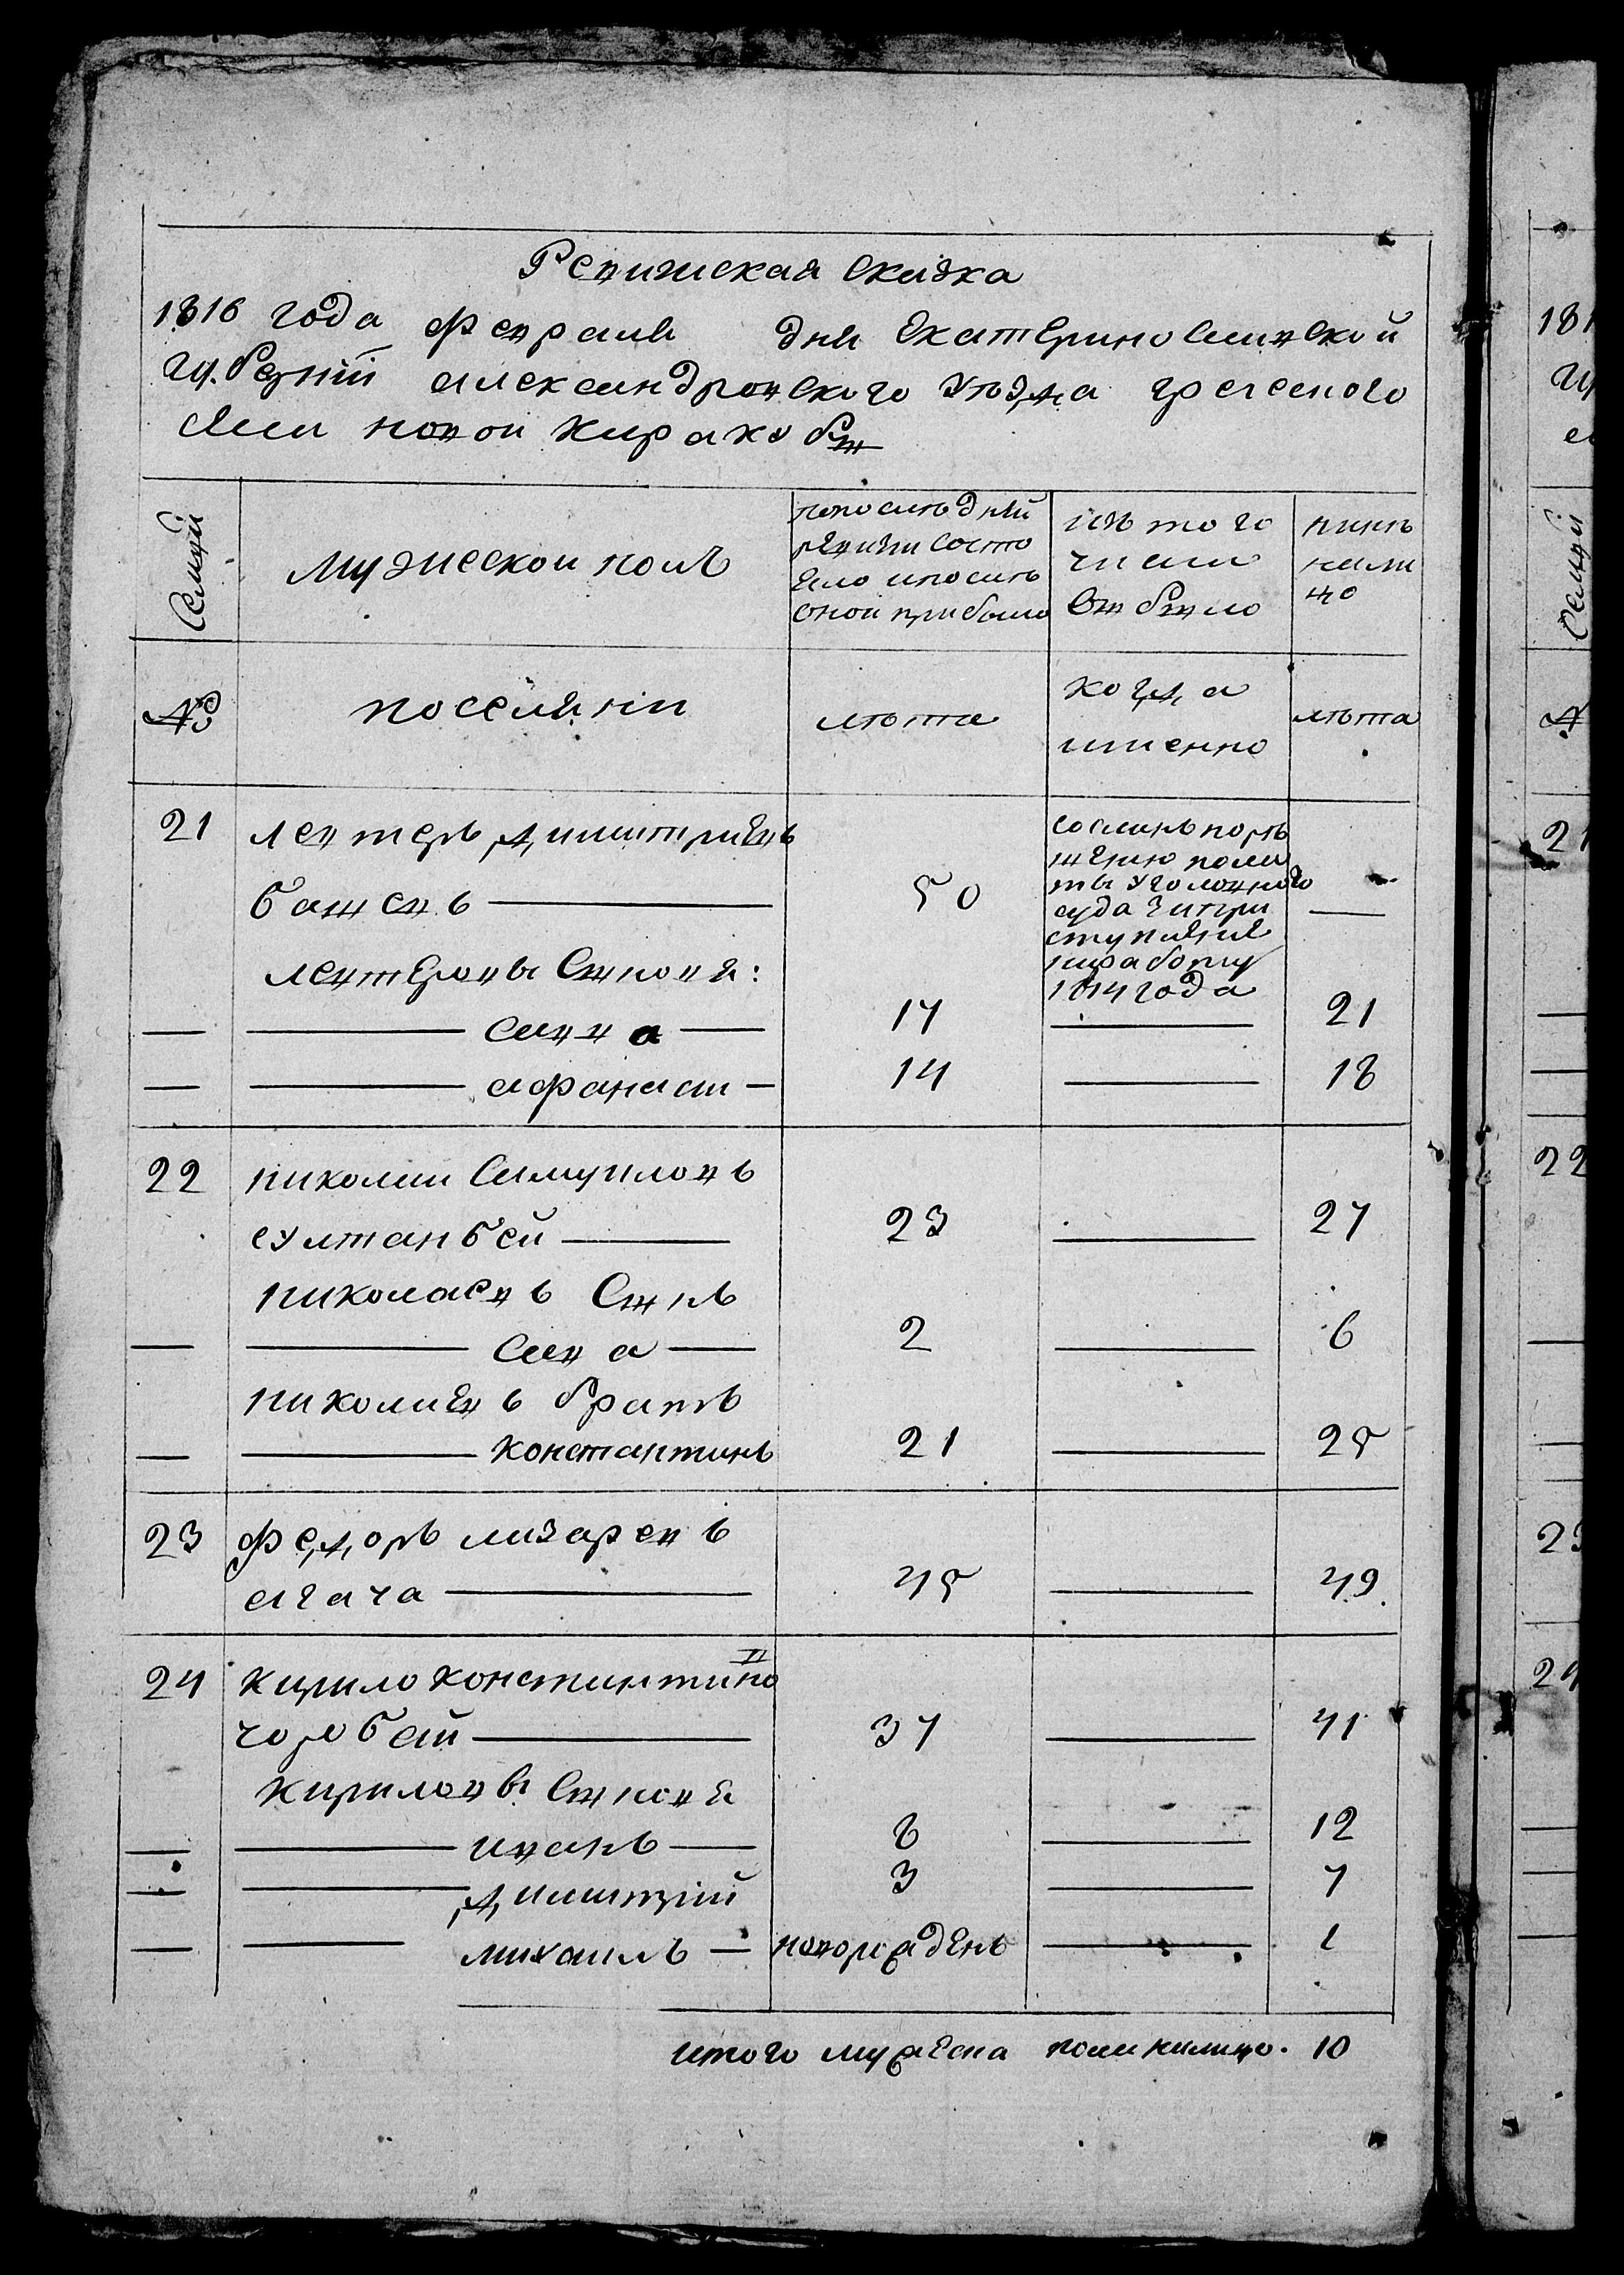 Ревижская скаска
1816 года февраля дня Екатеринославской
губерній александровского уѣзда греческого
села новой каракубы
Семьи
мужескои полъ
попоследнѣй
ревизіи состо
яло ипослѣ
оной прибыло
изъ того
числа
выбыло
нынѣ
нали
цо
№
поселянін
лѣта
когда
именно
лѣта
21 левтеръ димитриевъ
бажевъ 50
сосланъ порѣ
шению пала
ты уголовного
суда запри
ступление
наработу
1814 года —
левтеровы Сынова:
— савва — 17 — 21
— афанаси — 14 — 18
22 николаи Самуиловъ
султанбей — 23 — 27
николаевъ Сынъ
— сава — 2 — 6
николаевъ братъ
— константинъ 21 — 25
23 федоръ лазаревъ
агача — 45 — 49
24 кирило константино в
чоробай — 37 — 41
кириловы Сынова
— иванъ — 8 — 12
— димитрій 3 — 7
— михаилъ — новорожденъ — 1
итого мужеска пола налицо. 10
181
21
22
23
24